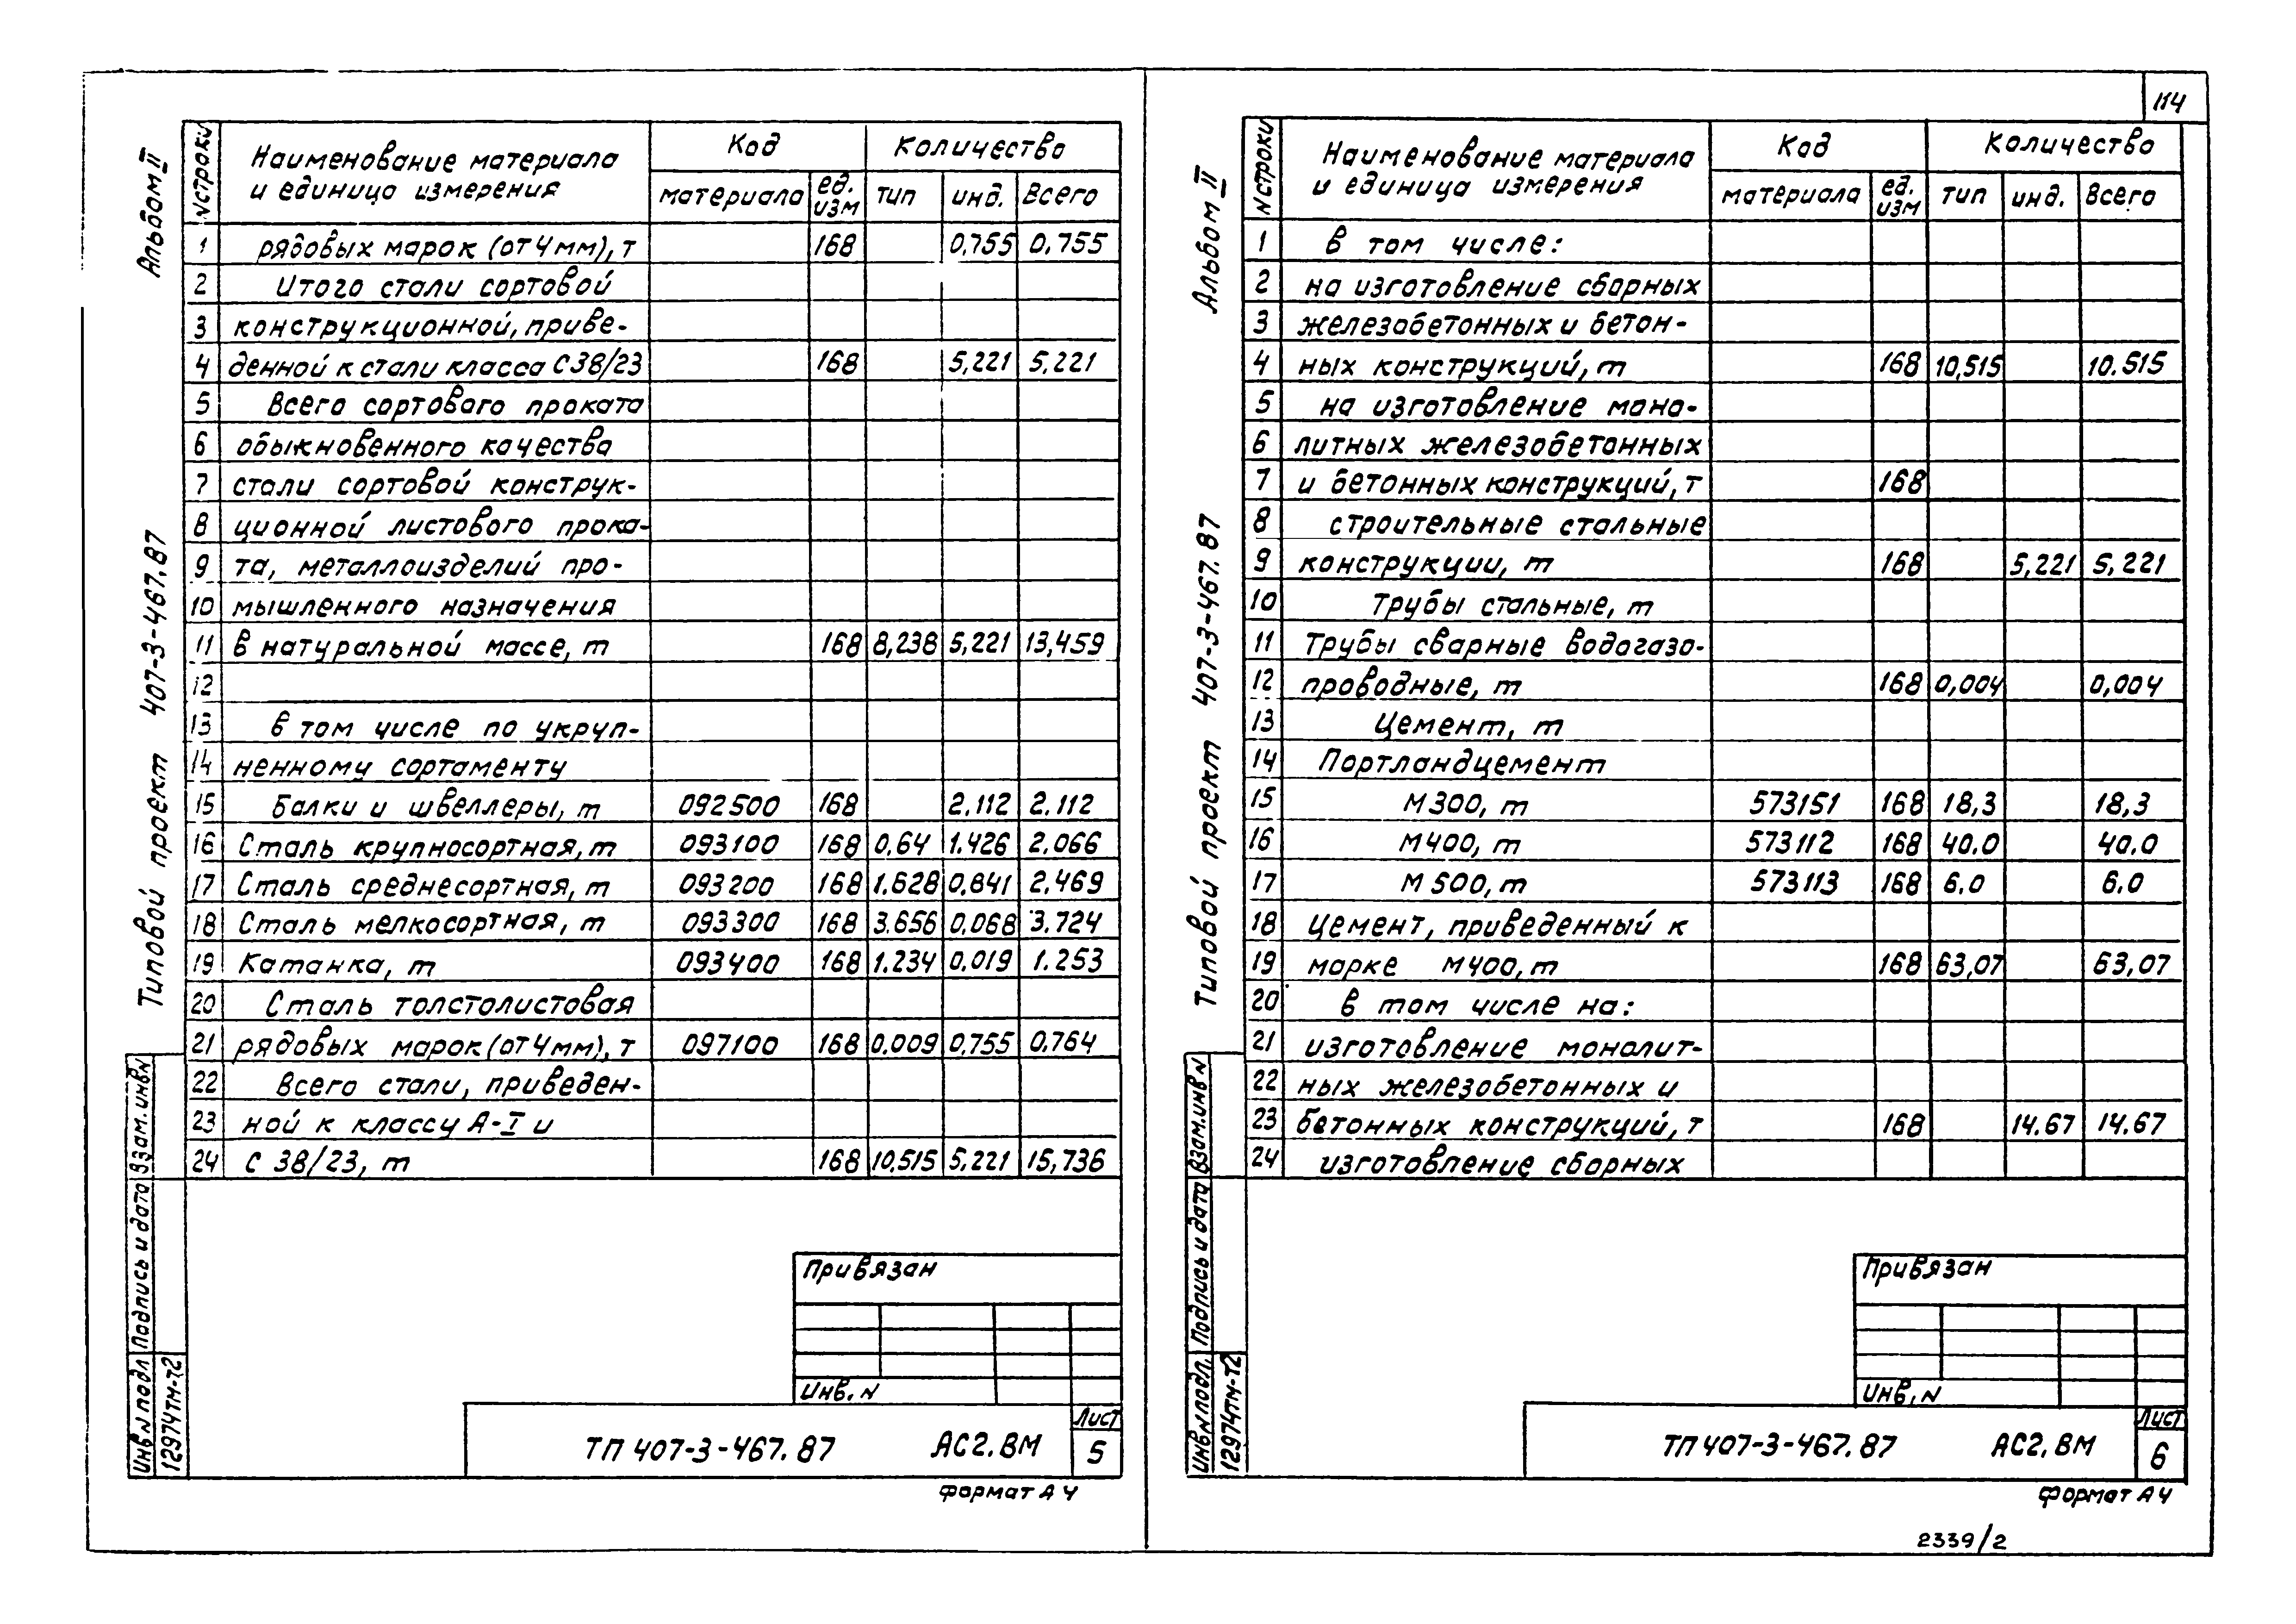 114
Альбом II
Типовой проект 407-3-467.87
N строки Наименование материала и единица измерения Код Количество
материала ед. изм тип инд. Всего
1 рядовых марок (от 4 мм), т 168 0,755 0,755
2 Итого стали сортовой
3 конструкционной, приве-
4 денной к стали класса С38/23 168 5,221 5,221
5 Всего сортового проката
6 обыкновенного качества
7 стали сортовой конструк-
8 ционной листового прока-
9 та, металлоизделий про-
10 мышленного назначения
11 в натуральной массе, т 168 8,238 5,221 13,459
12
13 в том числе по укруп-
14 ненному сортаменту
15 Балки и швеллеры, т 092500 168 2.112 2.112
16 Сталь крупносортная, т 093100 168 0,64 1.426 2,066
17 Сталь среднесортная, т 093200 168 1.628 0,841 2,469
18 Сталь мелкосортная, т 093300 168 3.656 0,068 3.724
19 Катанка, т 093400 168 1.234 0,019 1.253
20 Сталь толстолистовая
21 рядовых марок (от 4 мм), т 097100 168 0,009 0,755 0,764
22 Всего стали, приведен-
23 ной к классу А-I и
24 С 38/23, т 168 10,515 5,221 15,736
Взам. инв N
Подпись и дата
Инв N подл
12974тм-т2
Привязан
Инв. N
ТП 407-3-467.87 АС2.ВМ
Лист
5
формат А4
Альбом II
Типовой проект 407-3-467.87
N строки Наименование материала и единица измерения Код Количество
материала ед. изм тип инд. Всего
1 в том числе:
2 на изготовление сборных
3 железобетонных и бетон-
4 ных конструкций, т 168 10,515 10.515
5 на изготовление моно-
6 литных железобетонных
7 и бетонных конструкций, т 168
8 строительные стальные
9 конструкции, т 168 5,221 5,221
10 Трубы стальные, т
11 Трубы сварные водогазо-
12 проводные, т 168 0,004 0,004
13 Цемент, т
14 Портландцемент
15 М300, т 573151 168 18,3 18,3
16 М400, т 573112 168 40.0 40.0
17 М500, т 573113 168 6.0 6.0
18 Цемент, приведенный к
19 марке М400, т 168 63,07 63,07
20 в том числе на:
21 изготовление монолит-
22 ных железобетонных и
23 бетонных конструкций, т 168 14.67 14.67
24 изготовление сборных
Взам. инв N
Подпись и дата
Инв N подл.
12974тм-т2
Привязан
Инв, N
ТП 407-3-467.87 АС2.ВМ
Лист
6
формат А4
2339/2